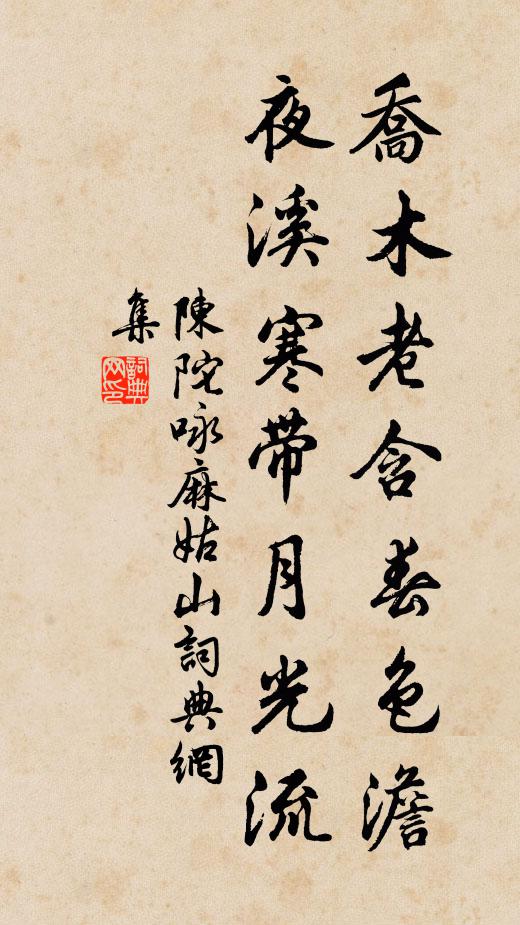 喬木老含春色澹
夜溪寒帶月光流
陳陀咏麻姑山詞典網
集
詞典网印